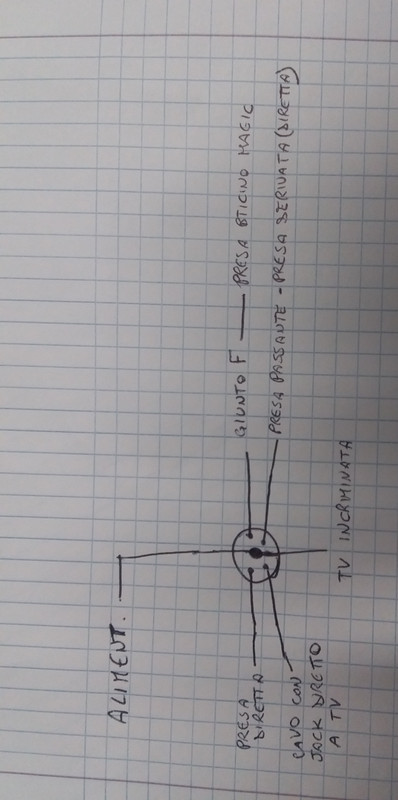 ALIMENT.
GIUNTO F — PRESA BTICINO MAGIC
PRESA PASSANTE - PRESA DERIVATA (DIRETTA)
TV INCRIMINATA
PRESA
DIRETTA
CAVO CON
JACK DIRETTO
A TV